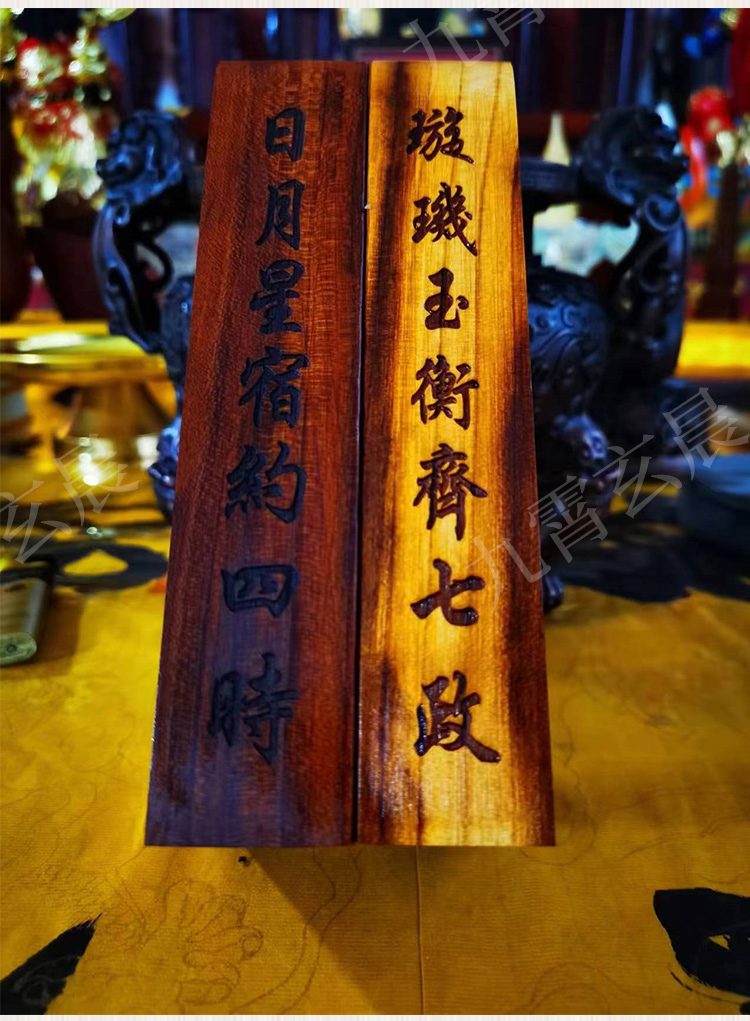 璇璣玉衡齊七政
日月星宿約四時
九霄玄晨
九霄玄晨
玄晨